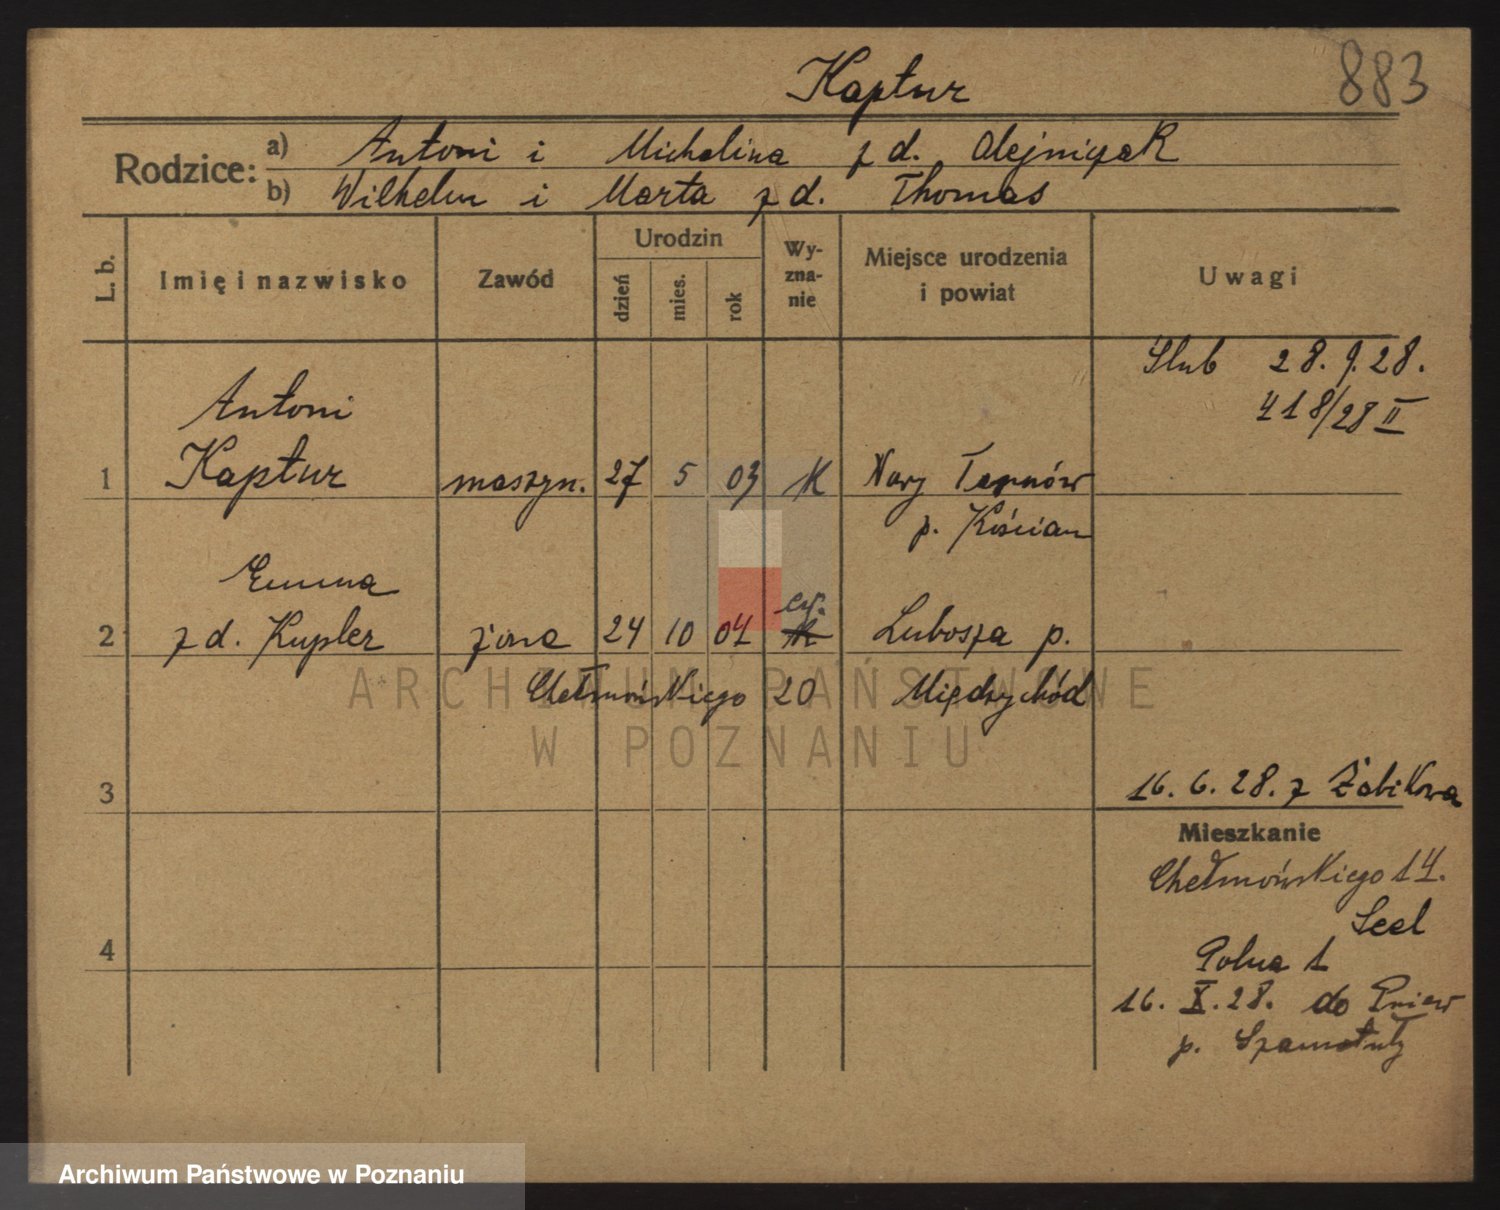 Kaptur
883
Rodzice:
a) Antoni i Michalina z d. Olejniczak
b) Wilhelm i Marta z d. Thomas
L. b.
Imię i nazwisko
Zawód
Urodzin
dzień
mies.
rok
Wy-
zna-
nie
Miejsce urodzenia
i powiat
Uwagi
Slub 28. 9. 28.
418/28 II
Antoni
1 Kaptur maszyn. 27 5 03 K Nowy
p. Kościan
Emma
ew.
2 z d. Kupler żona 24 10 04 K Lubosza p.
Chełmońskiego 20 Międzychód
ARCHIWUM PAŃSTWOWE
W POZNANIU
3
16. 6. 28. z Żabikowa
Mieszkanie
Chełmońskiego 14.
Seel
4
Polna 1
16. X. 28. do Pniew
p. Szamotuły
Archiwum Państwowe w Poznaniu